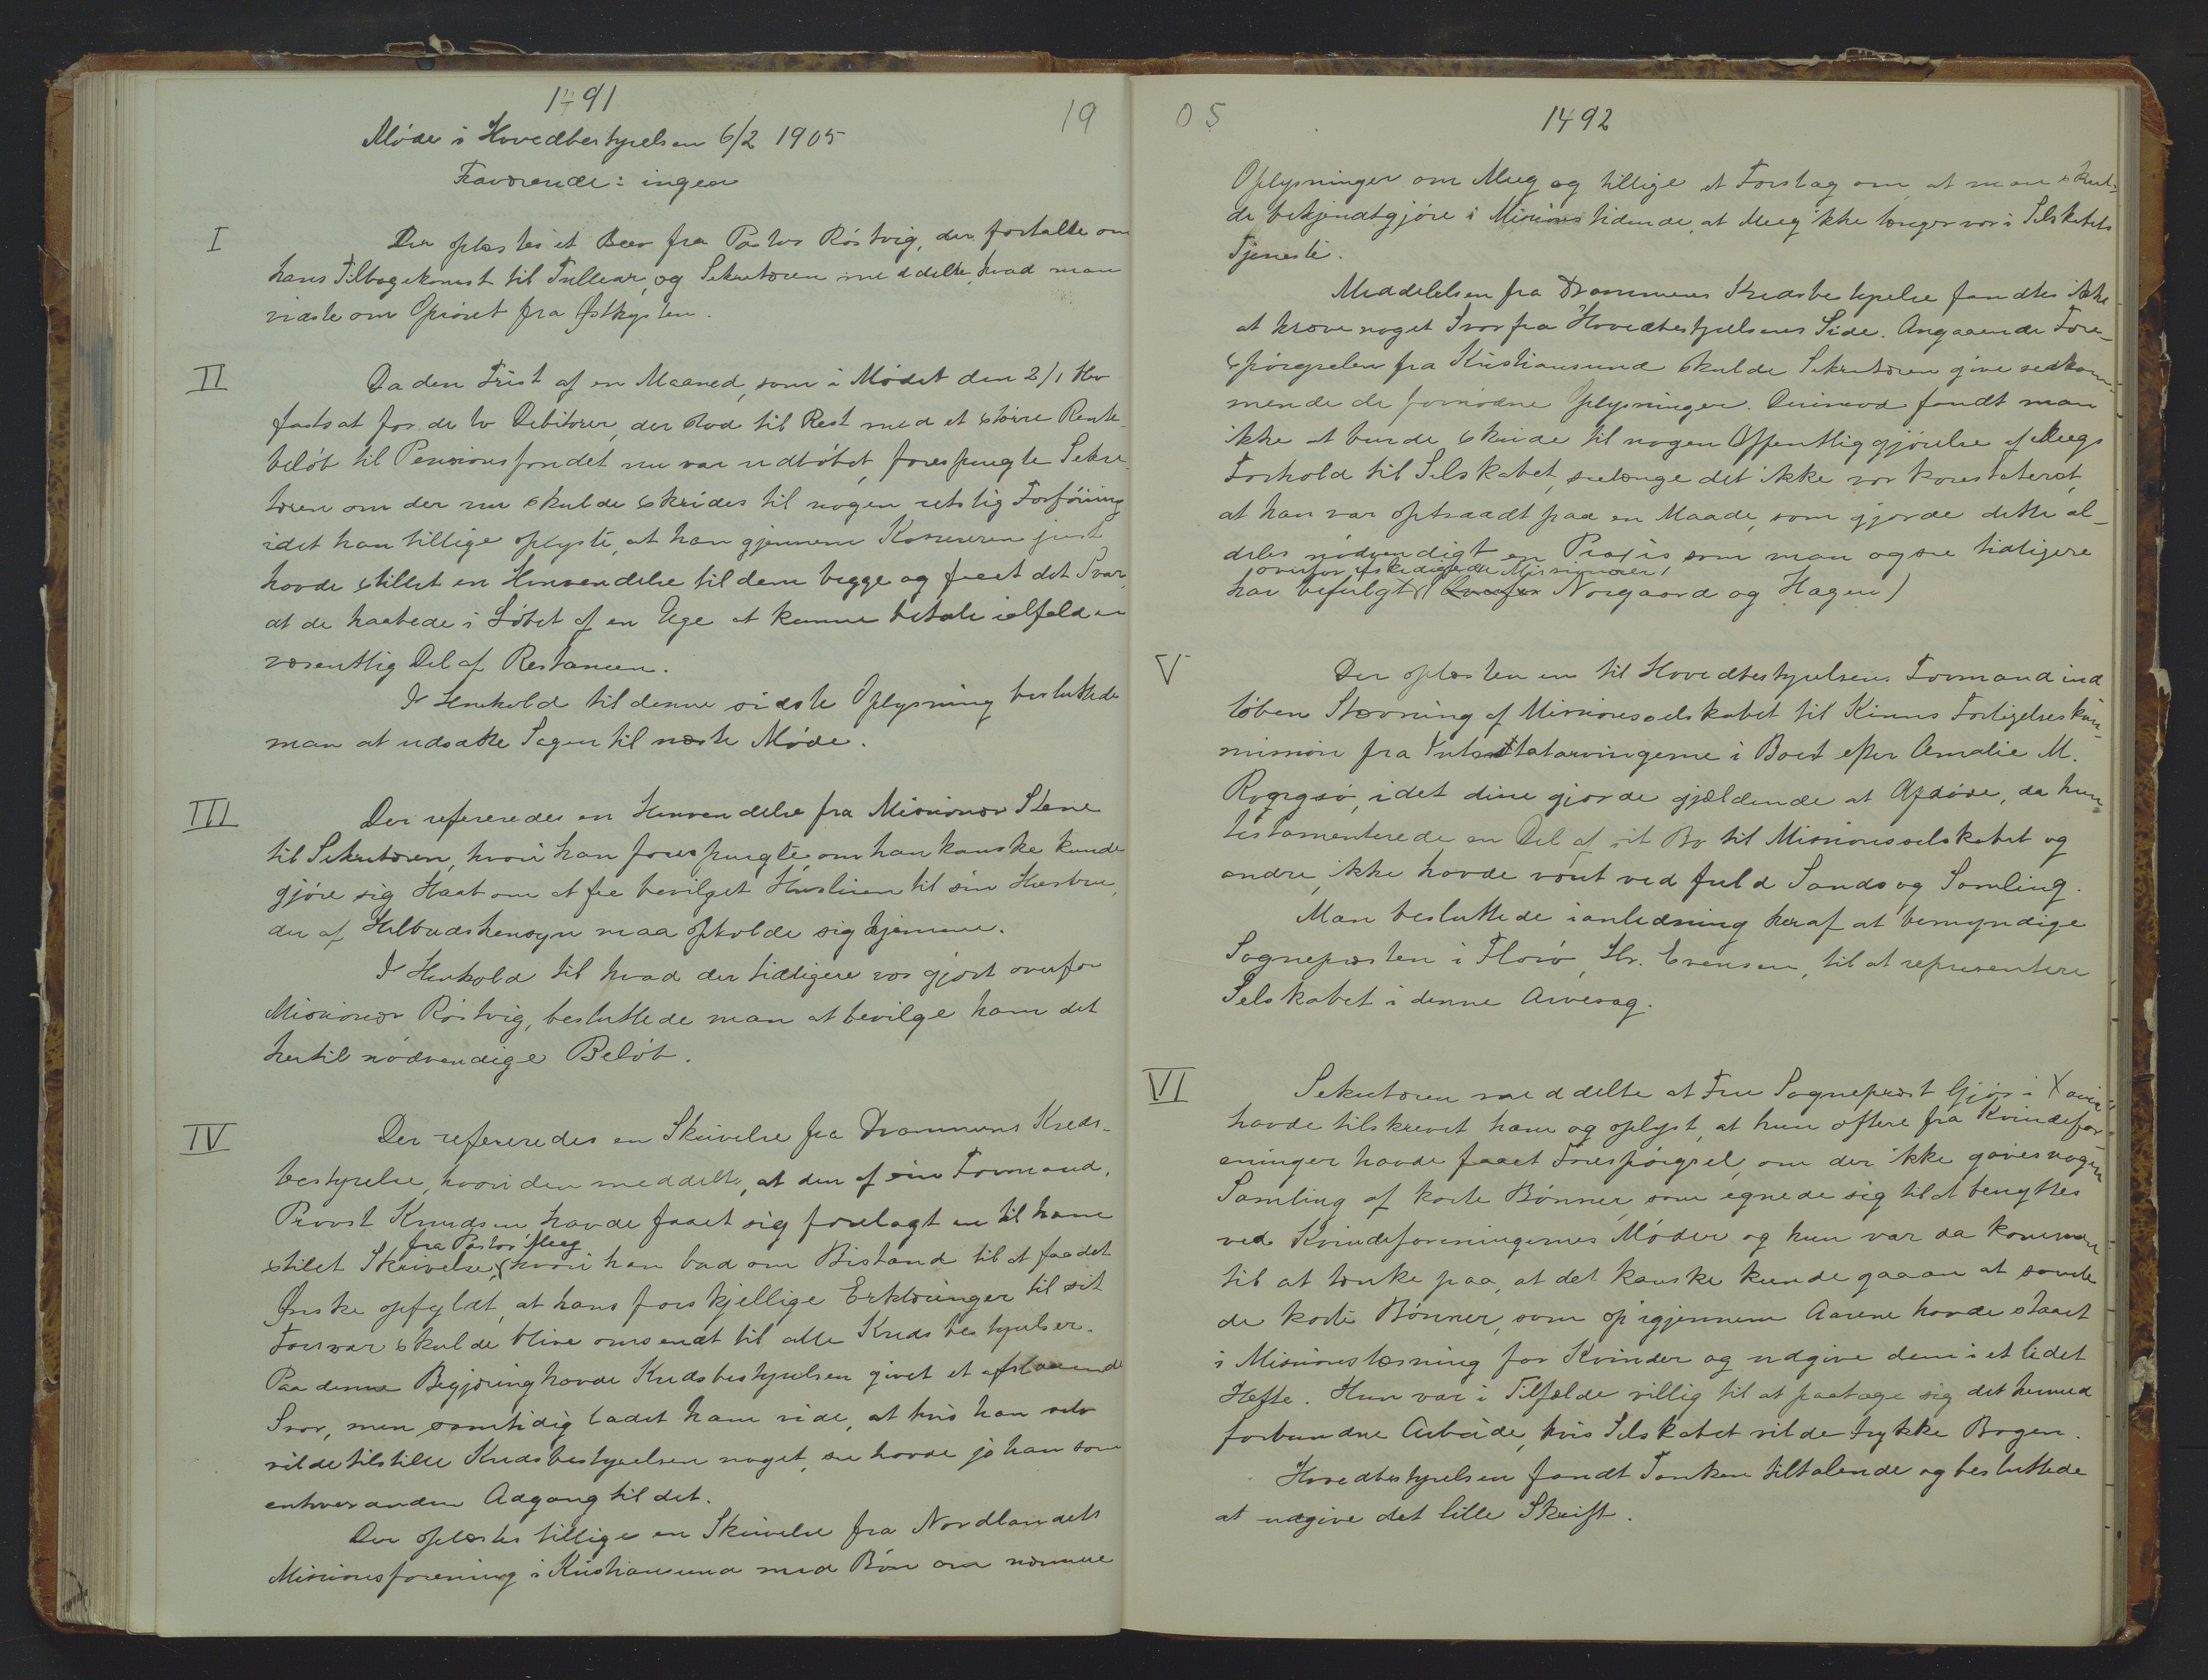 1491
19
Møde i Hovedbestyrelsen 6/2 1905
Fraværende: ingen
I
Der oplæstes et Brev fra Pastor Röstvig, der fortalte om
hans Tilbagekomst til Tullear, og Sekretæren meddelte, hvad man
vidste om Oprøret fra Østkysten.
II
Da den Frist af en Maaned, som i Mødet den 2/1 blev
fastsat for de to Debitorer, der stod til Rest med et større Rente-
beløb til Pensionsfondet nu var udløbet, forespurgte Sekre-
tæren om der nu skulde skrides til nogen retslig Forføining
idet han tillige oplyste, at han gjennem Kassereren just
havde stillet en Henvendelse til dem begge og faaet det Svar,
at de haabede i Løbet af en Uge at kunne betale ialfald en
væsentlig Del af Restancen.
I Henhold til denne sidste Oplysning besluttede
man at udsætte Sagen til næste Møde.
III
Der refereredes en Henvendelse fra Missionær Stene
til Sekretæren, hvori han forespurgte, om han kanske kunde
gjøre sig Haab om at faa bevilget Husleien til sin Hustru,
der af Helbredshensyn maa opholde sig hjemme.
I Henhold til hvad der tidligere var gjort overfor
Missionær Röstvig, besluttede man at bevilge ham det
hertil nødvendige Beløb.
IV
Der refereredes en Skrivelse fra Drammens Kreds-
bestyrelse, hvori den meddelte, at den af sin Formand,
Provst Knudsen havde faaet sig forelagt en til ham
fra Pastor Meeg
stilet Skrivelse, hvori han bad om Bistand til at faa det
Ønske opfyldt, at hans forskjellige Erklæringer til sit
Forsvar skulde blive omsendt til alle Kredsbestyrelser.
Paa denne Begjæring havde Kredsbestyrelsen givet et afslaaende
Svar, men samtidig ladet ham vide, at hvis han selv
vilde tilstille Kredsbestyrelsen noget, saa havde jo han som
enhver anden Adgang til det.
Der oplæstes tillige en Skrivelse fra Nordlandets
Missionsforening i Kristiansund med Bøn om nærmere
05
1492
Oplysninger om Meeg og tillige et Forslag om at man skul-
de bekjendtgjøre i Missionstidende, at Meeg ikke længer var i Selskabets
Tjeneste.
Meddelelsen fra Drammens Kredsbestyrelse fandtes ikke
at kræve noget Svar fra Hovedbestyrelsens Side. Angaaende Fore-
spørgselen fra Kristiansund skulde Sekretæren give vedkom-
mende de fornødne Oplysninger. Derimod fandt man
ikke at burde skride til nogen Offentliggjørelse af Meegs
Forhold til Selskabet, saalænge det ikke var konstateret,
at han var optraadt paa en Maade, som gjorde dette al-
deles nødvendigt en Praxis som man ogsaa tidligere
overfor afskedigede Missionærer
har befulgt (Overfor Norgaard og Hagen)
V
Der oplæstes en til Hovedbestyrelsens Formand ind
løben Stævning af Missionsselskabet til Kinns Forligelseskom-
mission fra Intestatarvingerne i Boet efter Amalie M.
idet disse gjorde gjældende at Afdøde, da hun
testamenterede en Del af sit Bo til Missionsselskabet og
andre, ikke havde været ved fuld Sands og Samling.
Man besluttede i anledning heraf at bemyndige
Sognepræsten i Florø, Hr. Evensen, til at representere
Selskabet i denne Arvesag.
VI
Sekretæren meddelte at Fru Sognepræst Gjør i
havde tilskrevet ham og oplyst, at hun oftere fra Kvindefor-
eninger havde faaet Forespørgsel, om der ikke gaves nogen
Samling af korte Bønner, som egnede sig til at benyttes
ved Kvindeforeningernes Møder og hun var da kommen
til at tænke paa, at det kanske kunde gaa an at samle
de korte Bønner, som op igjennem Aarene havde staaet
i Missionslæsning for Kvinder og udgive dem i et lidet
Hefte. Hun var i Tilfælde villig til at paatage sig det hermed
forbundne Arbeide, hvis Selskabet vilde trykke Bogen.
Hovedbestyrelsen fandt Tanken tiltalende og besluttede
at udgive det lille Skrift.